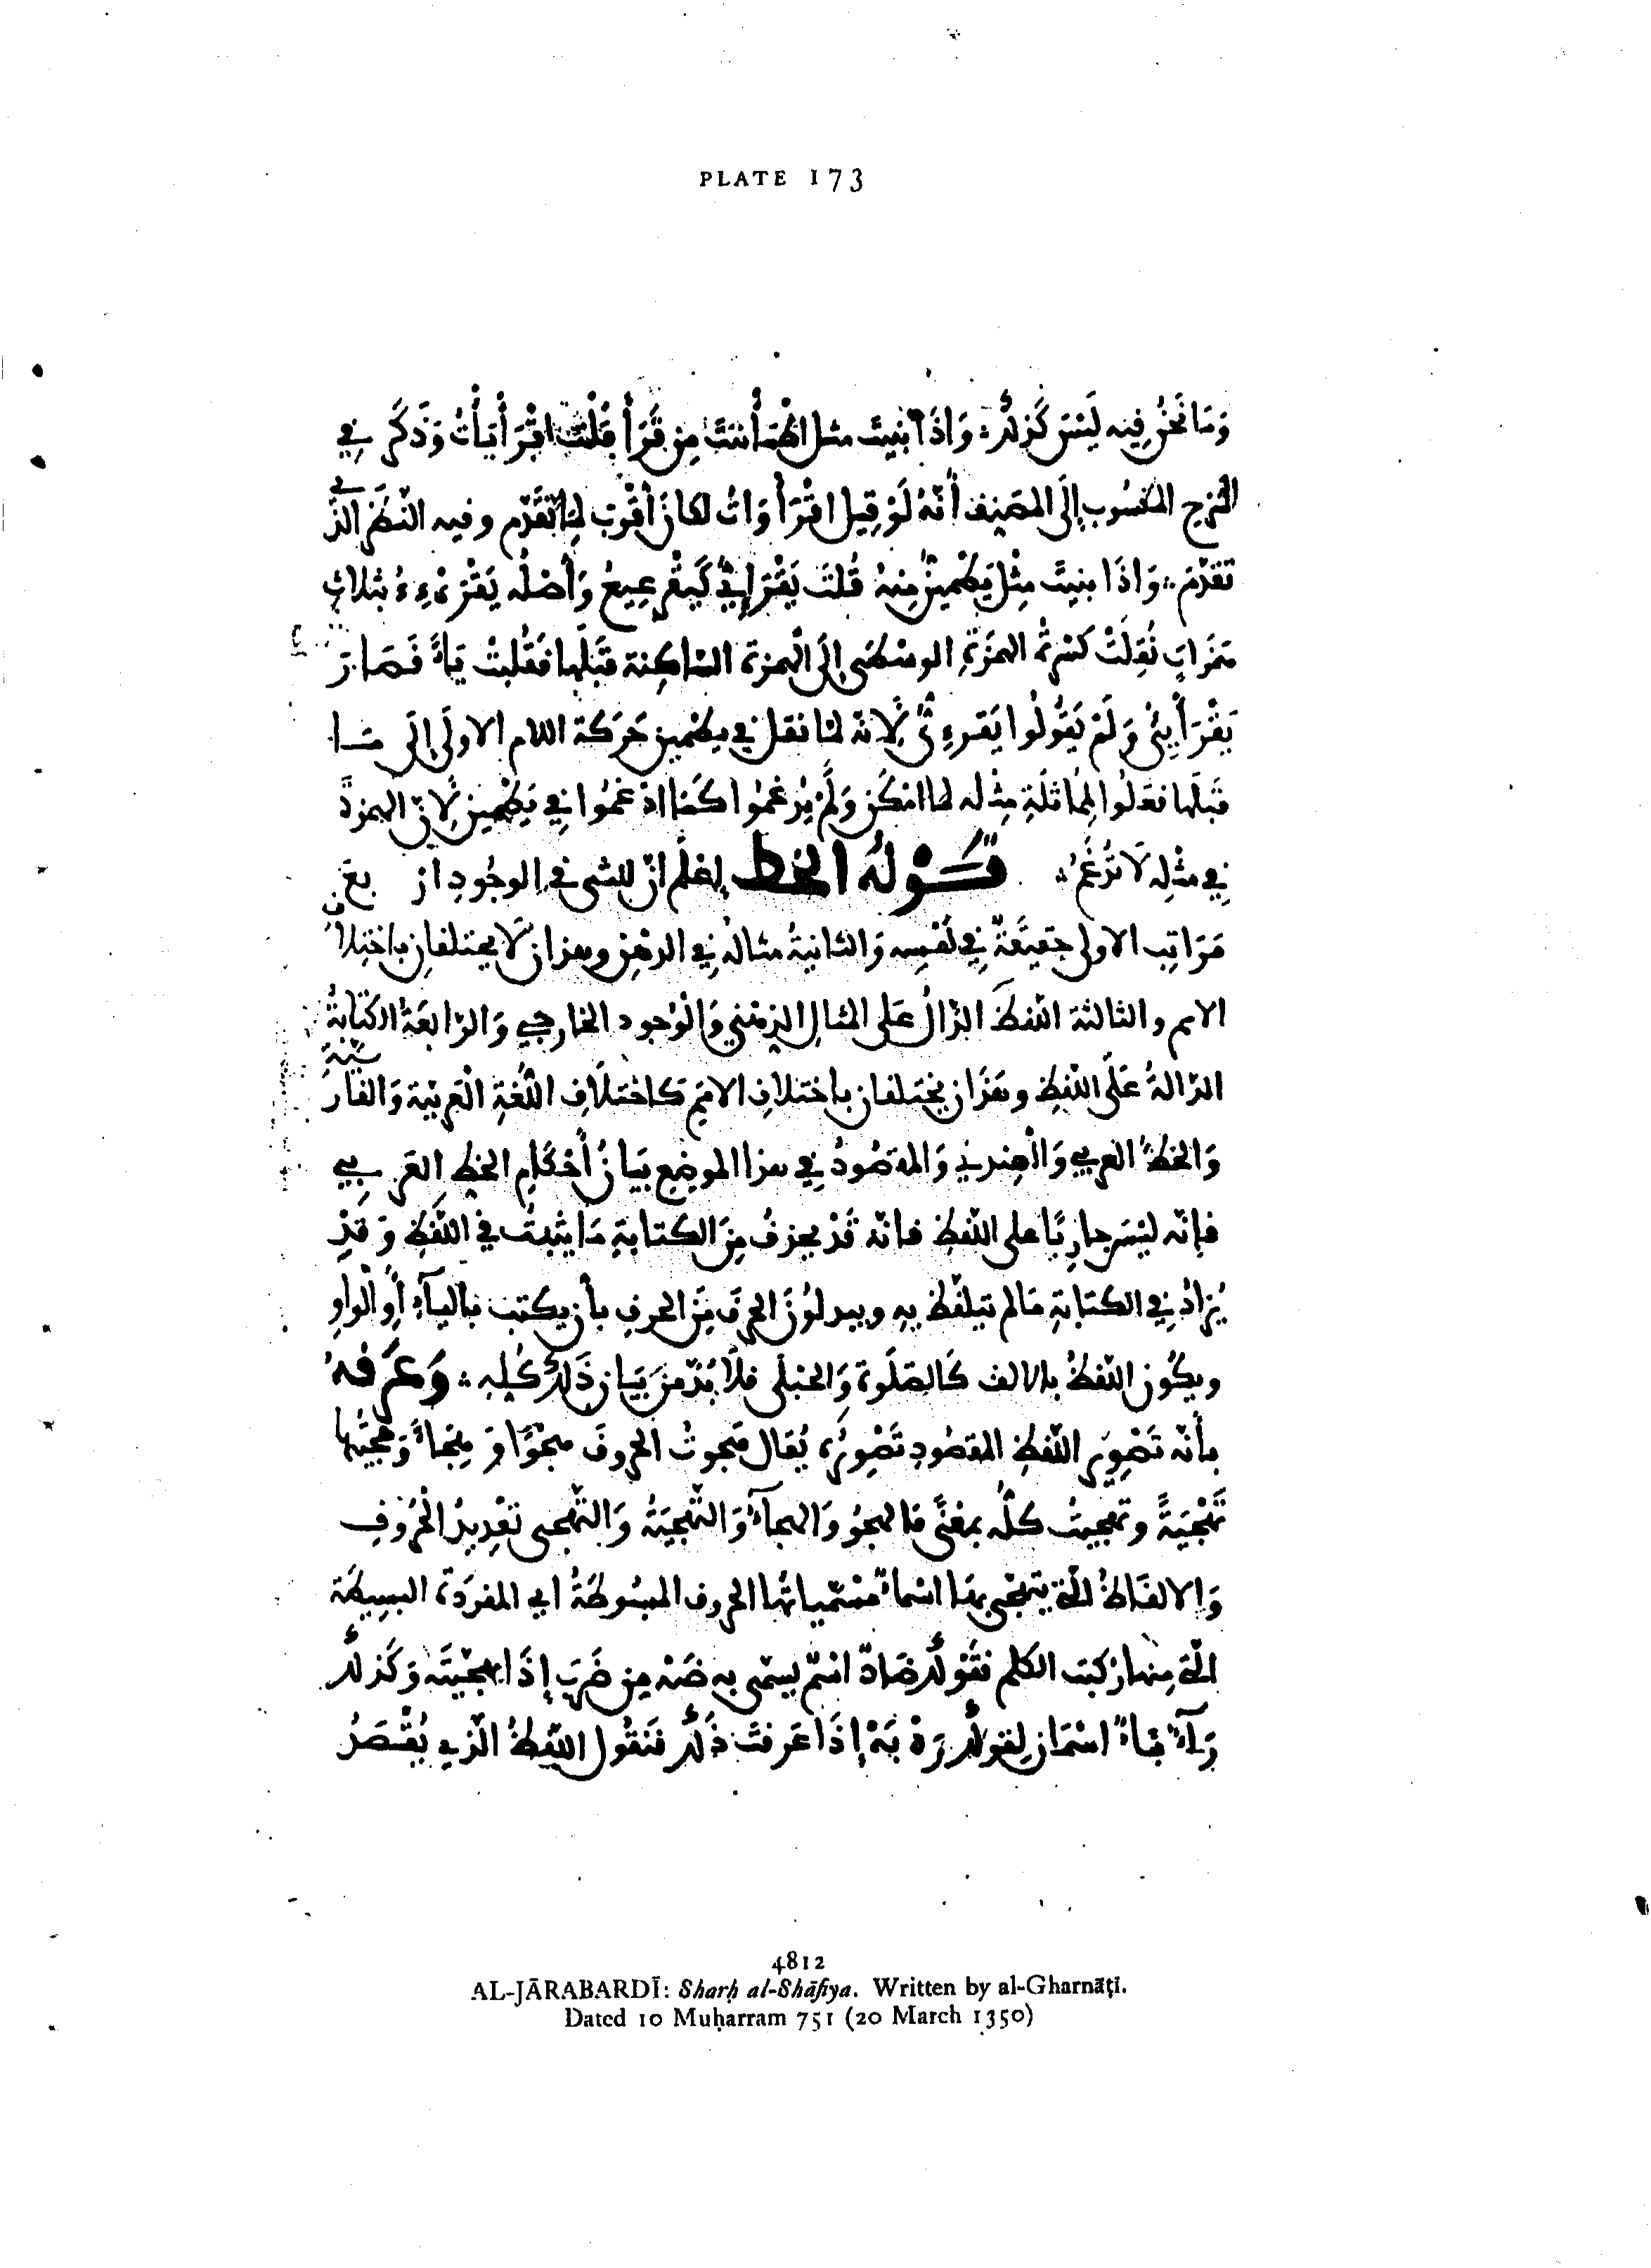 PLATE 173
وَمَا نَحْنُ فِيه لَيْسَ كَذلكَ وَاذَا بنيتَ مثل اطْمَأْننتَ مِن قَرَأَ قُلْتَ اقْرَأْيَأْتُ وَذَكَرَ فِي
الشرح المنسُوب إلَى المصَنِف أنّهُ لَوْ قِيل اقْرَأْوَاتُ لكان أَقْرَب لِمَا تَقَدَّم وفيه النّظَر الذِي
تقدّمَ وَاذَا بنيتَ مِثْل يَطْمَئِنُّ مِنهُ قُلتَ يَقْرَإِيُّ كَيَقْرَعِيعُ وَأَصْلُه يَقْرَءْءِءُ بثلاثِ
همَزاتٍ نُقِلَتْ كَسْرَةُ الهمَزَةِ الوسْطَى إلَى الْهمزة السّاكِنة قَبْلَها فقُلبتْ يَاءً فَصَارَ
يَقْرَأَيِئُ وَلَمْ يَقُولُوا يَقرءِيُّ لِأنّهُ لمّا نقل في يطمئن حَرَكَة اللام الاولَى إلَى مَا
قَبْلَها فعَلُوا لِمُمَاثلَةِ مِثْله لما امْكَن وَلَمْ يُدغمُوا كَمَا ادْغمُوا فِي يَطمئِن لِأنّ الهمزةَ
فِي مثْلِه لَا تُدْغَمُ قَوْلُهُ الخط إعْلَم انّ للشىء في الوجُودِ اربعَ
مَرَاتِب الاولى حَقِيقَةٌ فِي نَفْسِه وَالثانيةُ مثالهُ فِي الذهْنِ وهذان لَا يختلفانِ باختِلافِ
الامم والثالثة اللّفظ الدّالُ عَلى المثالِ الذهْنِي وَالْوُجود الخارجِي وَالرّابعَةُ الكتابَةُ
الدّالةُ عَلَى اللّفظِ وهذَان يَختلفان باختلافِ الامَمِ كاختلَافِ اللُّغَةِ الْعَرَبيّة وَالفارسيّةِ
وَالخطِّ العربي وَالْهِندي وَالمقصُودُ فِي هذا الموضِع بيَانُ أَحْكَامِ الخطِ العَرَبِي
فإنّه ليْسَ جارِيًا على اللّفظِ فانّه قَدْ يحذفُ مِنَ الكتابةِ مَا يثبتُ في اللّفظِ وَقَدْ
يُزادُ فِي الكتابةِ مَالم يتلفّظ بِهِ ويبدلُونَ الحرْفَ مِنَ الحرفِ بأن يكتب باليآءِ أوِ الْواوِ
ويكُون اللّفظُ بالالف كَالصّلَوة وَالحبْلَى فلَا بُدّ مِنْ بَيَان ذَلِكَ كُلِّهِ وَعَرَّفَهُ
بأنّه تَصْوِير اللّفظِ المقصُودِ تَصْوِيرُهُ يُقال هَجوتُ الحروفَ هجْوًا وَ هِجَاءً وَهجّيْتُها
تَهْجِيَةً وتهجيتُ كلّه بمعْنًى فالهجوُ وَالهجاءُ وَالتّهْجِيَةُ وَالتّهجى تعْدِيدُ الْحُرُوفِ
وَالالفَاظُ الّتي يتهجّى بهَا اسْمَاءٌ مُسَمّياتُها الحروف المبْسُوطَةُ اي المفرَدة البسِيطَة
الّتي مِنها رُكبت الكَلم فقَوْلُكَ ضَادٌ اسْمٌ يسمّى به ضَهْ مِن ضَرَبَ إذَا تهجّيتَه وَكَذلكَ
رَآءٌ بَاءٌ اسْمَان لِقولكَ رَهْ بَهْ إذَا عَرفتَ ذَلكَ فَنَقُول اللّفظُ الّذِي يُقْصَدُ
4812
AL-JĀRABARDĪ: Sharḥ al-Shāfiya. Written by al-Gharnāṭī.
Dated 10 Muḥarram 751 (20 March 1350)